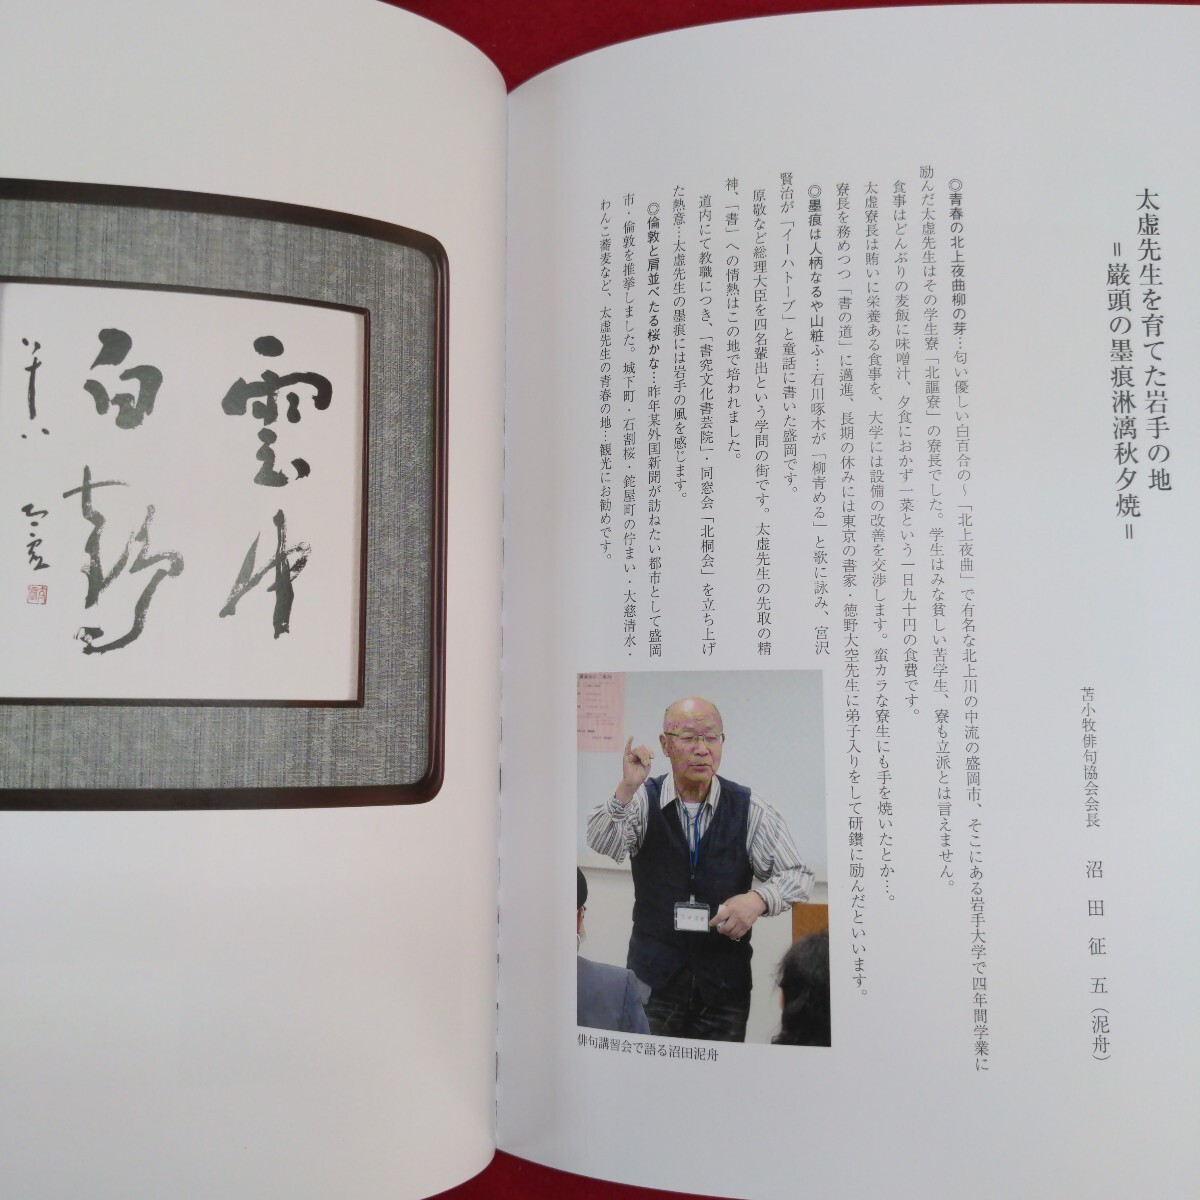 太虚先生を育てた岩手の地
＝巌頭の墨痕淋漓秋夕焼＝
苫小牧俳句協会会長　沼田征五（泥舟）
◎青春の北上夜曲柳の芽…匂い優しい白百合の～「北上夜曲」で有名な北上川の中流の盛岡市、そこにある岩手大学で四年間学業に
励んだ太虚先生はその学生寮「北謳寮」の寮長でした。学生はみな貧しい苦学生、寮も立派とは言えません。
食事はどんぶりの麦飯に味噌汁、夕食におかず一菜という一日九十円の食費です。
太虚寮長は賄いに栄養ある食事を、大学には設備の改善を交渉します。蛮カラな寮生にも手を焼いたとか…。
寮長を務めつつ「書の道」に邁進、長期の休みには東京の書家・徳野大空先生に弟子入りをして研鑽に励んだといいます。
◎墨痕は人柄なるや山粧ふ…石川啄木が「柳青める」と歌に詠み、宮沢
賢治が「イーハトーブ」と童話に書いた盛岡です。
原敬など総理大臣を四名輩出という学問の街です。太虚先生の先取の精
神、「書」への情熱はこの地で培われました。
道内にて教職につき、「書究文化書芸院」・同窓会「北桐会」を立ち上げ
た熱意…太虚先生の墨痕には岩手の風を感じます。
◎倫敦と肩並べたる桜かな…昨年某外国新聞が訪ねたい都市として盛岡
市・倫敦を推挙しました。城下町・石割桜・鉈屋町の佇まい・大慈清水・
わんこ蕎麦など、太虚先生の青春の地…観光にお勧めです。
俳句講習会で語る沼田泥舟
雲中
白鶴